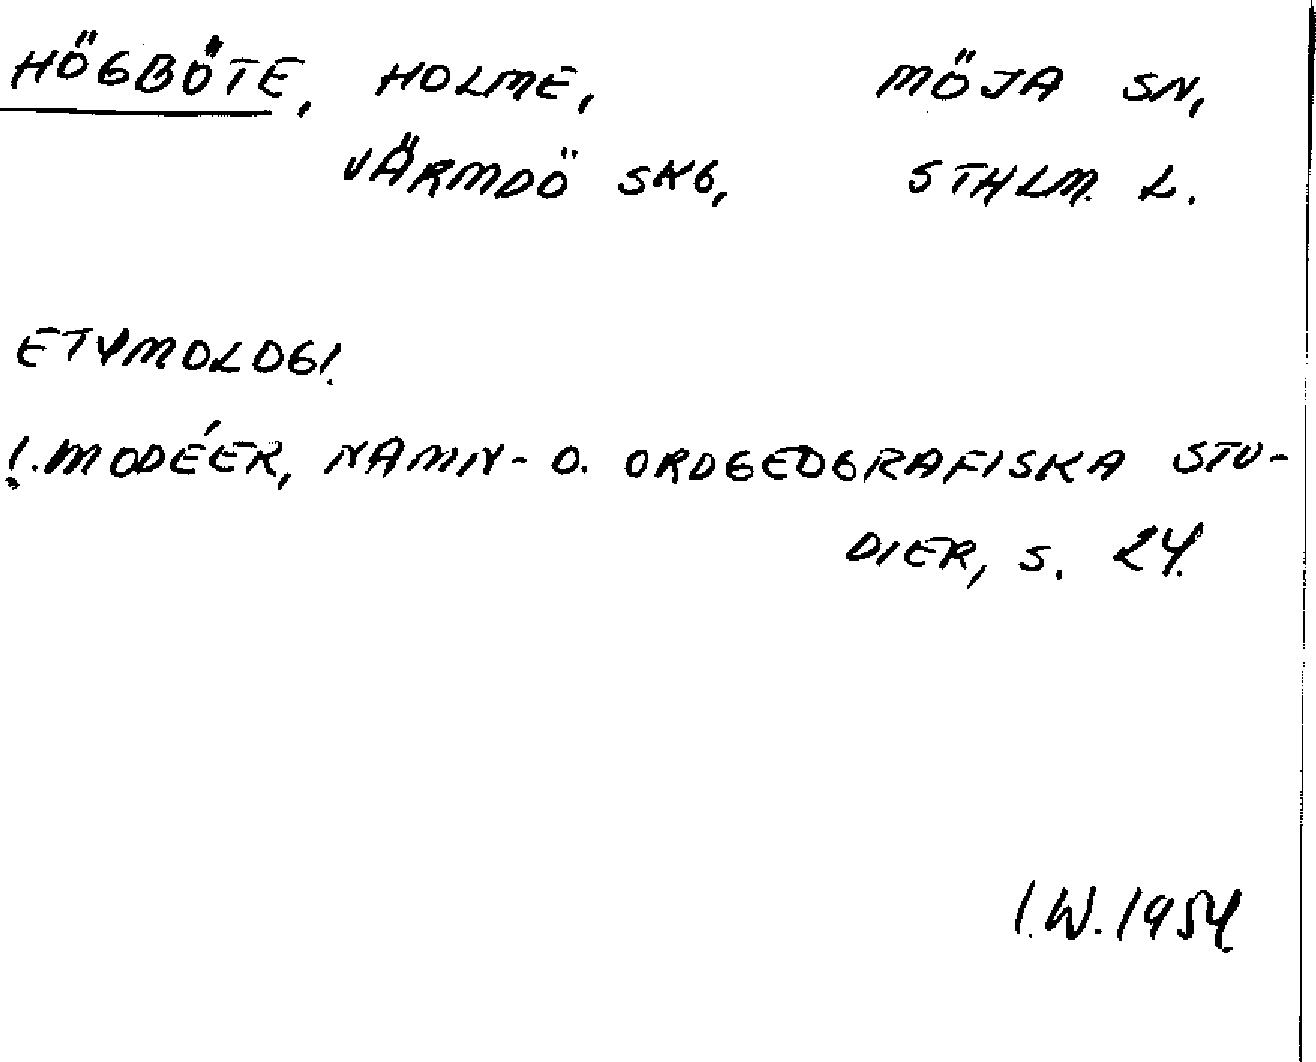 HÖGBÖTE, HOLME, MÖJA SN,
VÄRMDÖ SKG, STHLM. L.
ETYMOLOGI.
I. MODÉER, NAMN- O. ORDGEOGRAFISKA STU-
DIER, S. 24.
I.W. 1954.